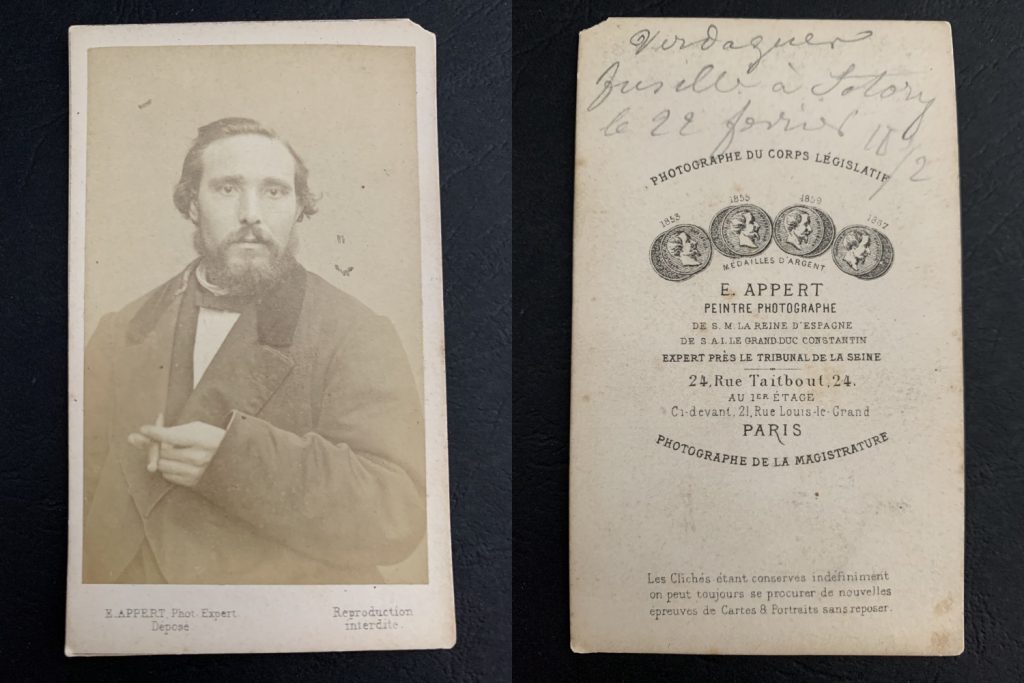 E. APPERT, Phot. Expert
Déposé
Reproduction
interdite.
Verdaguer
fusillé à Satory
le 22 fevrier 18/2
PHOTOGRAPHE DU CORPS LÉGISLATIF
1853 1855 1859 1867
MÉDAILLES D'ARGENT
E. APPERT
PEINTRE PHOTOGRAPHE
DE S. M. LA REINE D'ESPAGNE
DE S.A.I. LE GRAND.DUC CONSTANTIN
EXPERT PRÈS LE TRIBUNAL DE LA SEINE
24, Rue Taitbout, 24.
AU 1ER ÉTAGE
Ci-devant, 21, Rue Louis-le-Grand
PARIS
PHOTOGRAPHE DE LA MAGISTRATURE
Les Clichés étant conservés indéfiniment
on peut toujours se procurer de nouvelles
épreuves de Cartes & Portraits sans reposer.